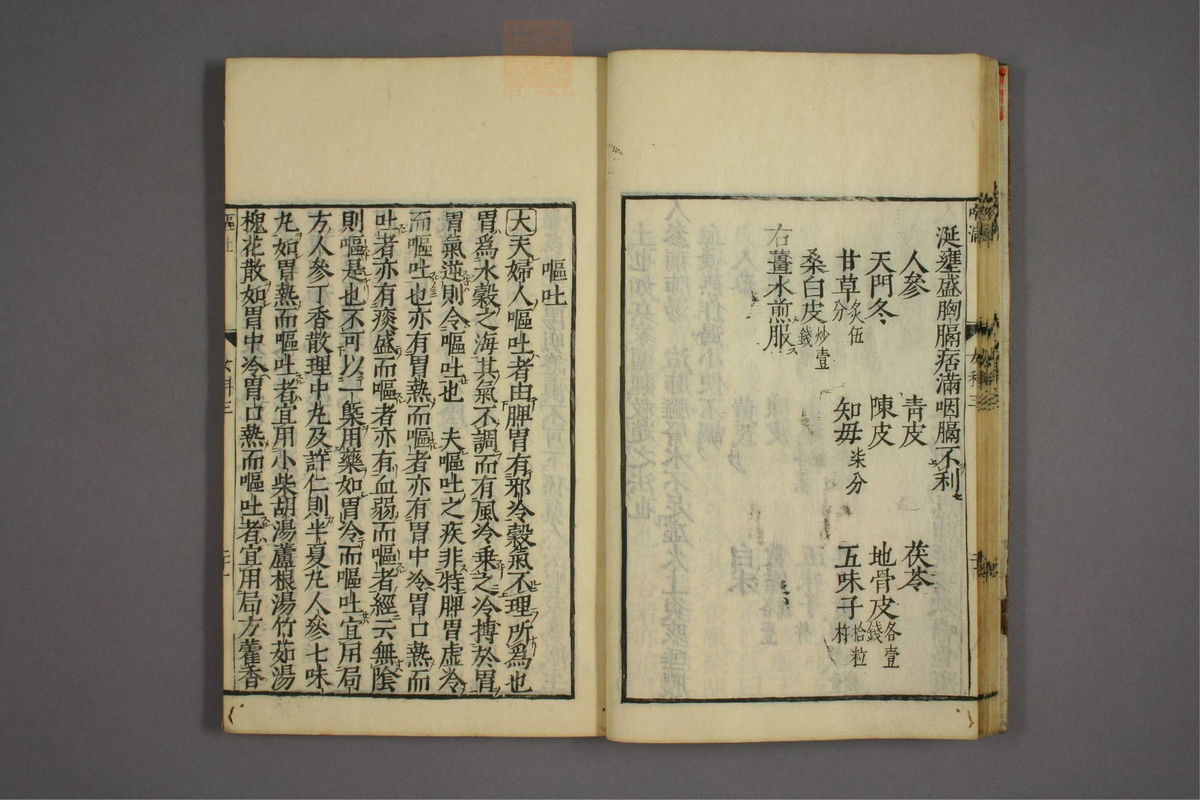 涎壅盛胸膈痞滿咽膈不利
人參 青皮 茯苓
天門冬 陳皮 地骨皮各壹錢
甘草炙伍分 知母柒分 五味子拾粒杵
桑白皮炒壹錢
右薑水煎服
嘔吐
大夫婦人嘔吐者由脾胃有邪冷穀氣不理所爲也
胃爲水穀之海其氣不調而有風冷乗之冷搏於胃
胃氣逆則令嘔吐也 夫嘔吐之疾非特脾胃虚冷
而嘔吐也亦有胃熱而嘔者亦有胃中冷胃口熱而
吐者亦有痰盛而嘔者亦有血弱而嘔者經云無陰
則嘔是也不可以一槩用藥如胃冷而嘔吐宜用局
方人參丁香散理中丸及許仁則半夏丸人參七味
丸如胃熱而嘔吐者宜用小柴胡湯蘆根湯竹茹湯
槐花散如胃中冷胃口熱而嘔吐者宜用局方藿香
嘔吐
女科三